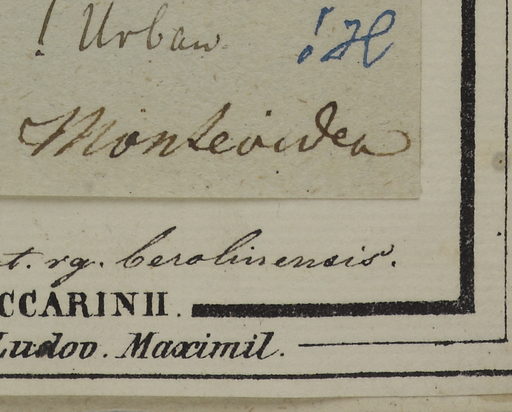 ! Urban !H
Montevideo
t. rg. berolinensis.
CCARINII.
Ludov. Maximil.